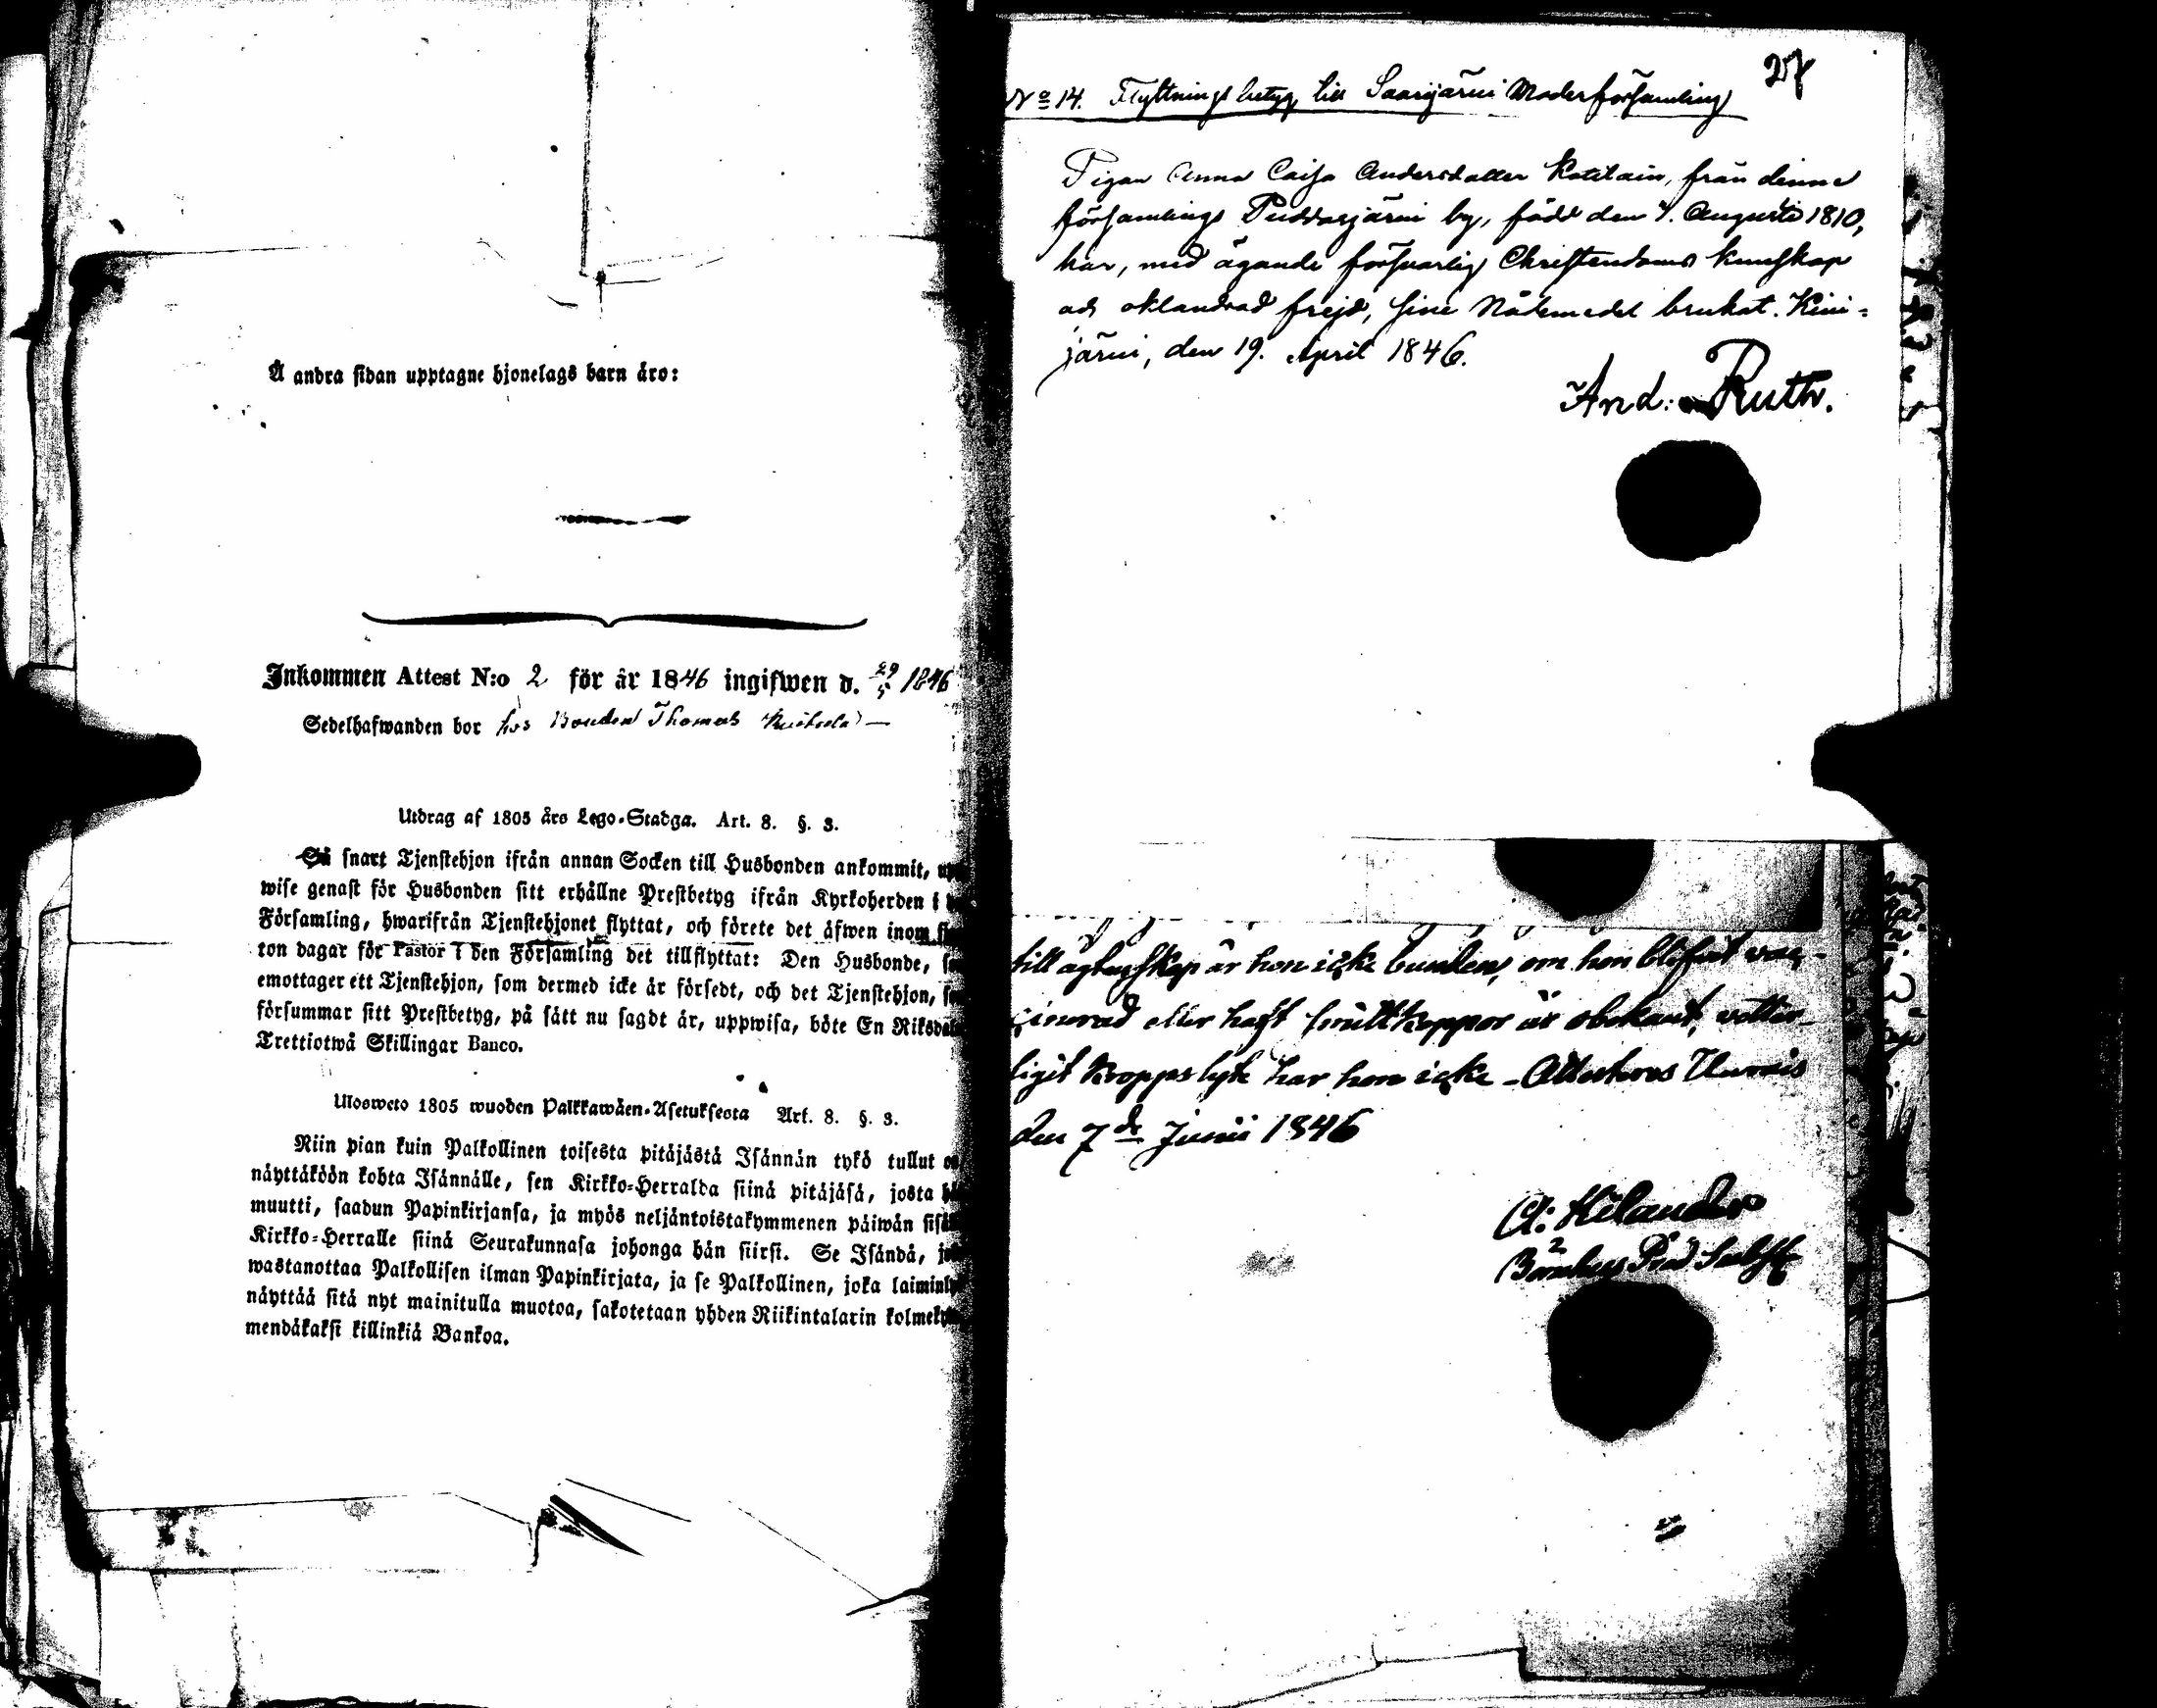 Å andra sidan upptagne hjonelags barn äro:
Inkommen Attest N:o 2 för år 1846 ingifwen d. 29/5 1846
Sedelhafwanden bor hos Bonden Thomas
Utdrag af 1805 års Lego-Stadga. Art. 8. §. 3.
Så snart Tjenstehjon ifrån annan Socken till Husbonden ankommit,
wise genast för Husbonden sitt erhållne Prestbetyg ifrån Kyrkoherden i
Församling, hwarifrån Tjenstehjonet flyttat, och förete det äfwen inom
ton dagar för Pastor i den Församling det tillflyttat: Den Husbonde,
emottager ett Tjenstehjon, som dermed icke är försedt, och det Tjenstehjon,
försummar sitt Prestbetyg, på sätt nu sagdt är, uppwisa, böte En Riksdal
Trettiotwå Skillingar Banco.
Ulosweto 1805 wuoden Palkkawäen-Asetuksesta Art. 8. §. 3.
Niin pian kuin Palkollinen toisesta pitäjästä Isännän tykö tullut
näyttäköön kohta Isännälle, sen Kirkko-Herralda siinä pitäjäsä, josta
muutti, saadun Papinkirjansa, ja myös neljäntoistakymmenen päiwän sisä
Kirkko-Herralle siinä Seurakunnasa johonga hän siirsi. Se Isändä,
wastanottaa Palkollisen ilman Papinkirjata, ja se Palkollinen, joka laiminly
näyttää sitä nyt mainitulla muotoa, sakotetaan yhden Riikintalarin kolmeky
mendäkaksi killinkiä Bankoa.
27
No 14. Flyttningsbetyg till Saarijärvi Moderförsamling
Pigan Anna Caisa Andersdotter Kotilain, från denne
församlings Puddasjärvi by, född den 7. Augusti 1810,
har, med ägande försvarlig Christendoms kunskap
och oklandrad frejd, sine Nådemedel brukat. Kivi-
järvi, den 19. April 1846.
And: Ruth.
till ägtenskap är hon icke bunden, om hon blifvit vac-
cinerad eller haft smittkoppor är obekant, vetter-
ligit kroppslyte har hon icke - Attesteras
den 7de Junii 1846